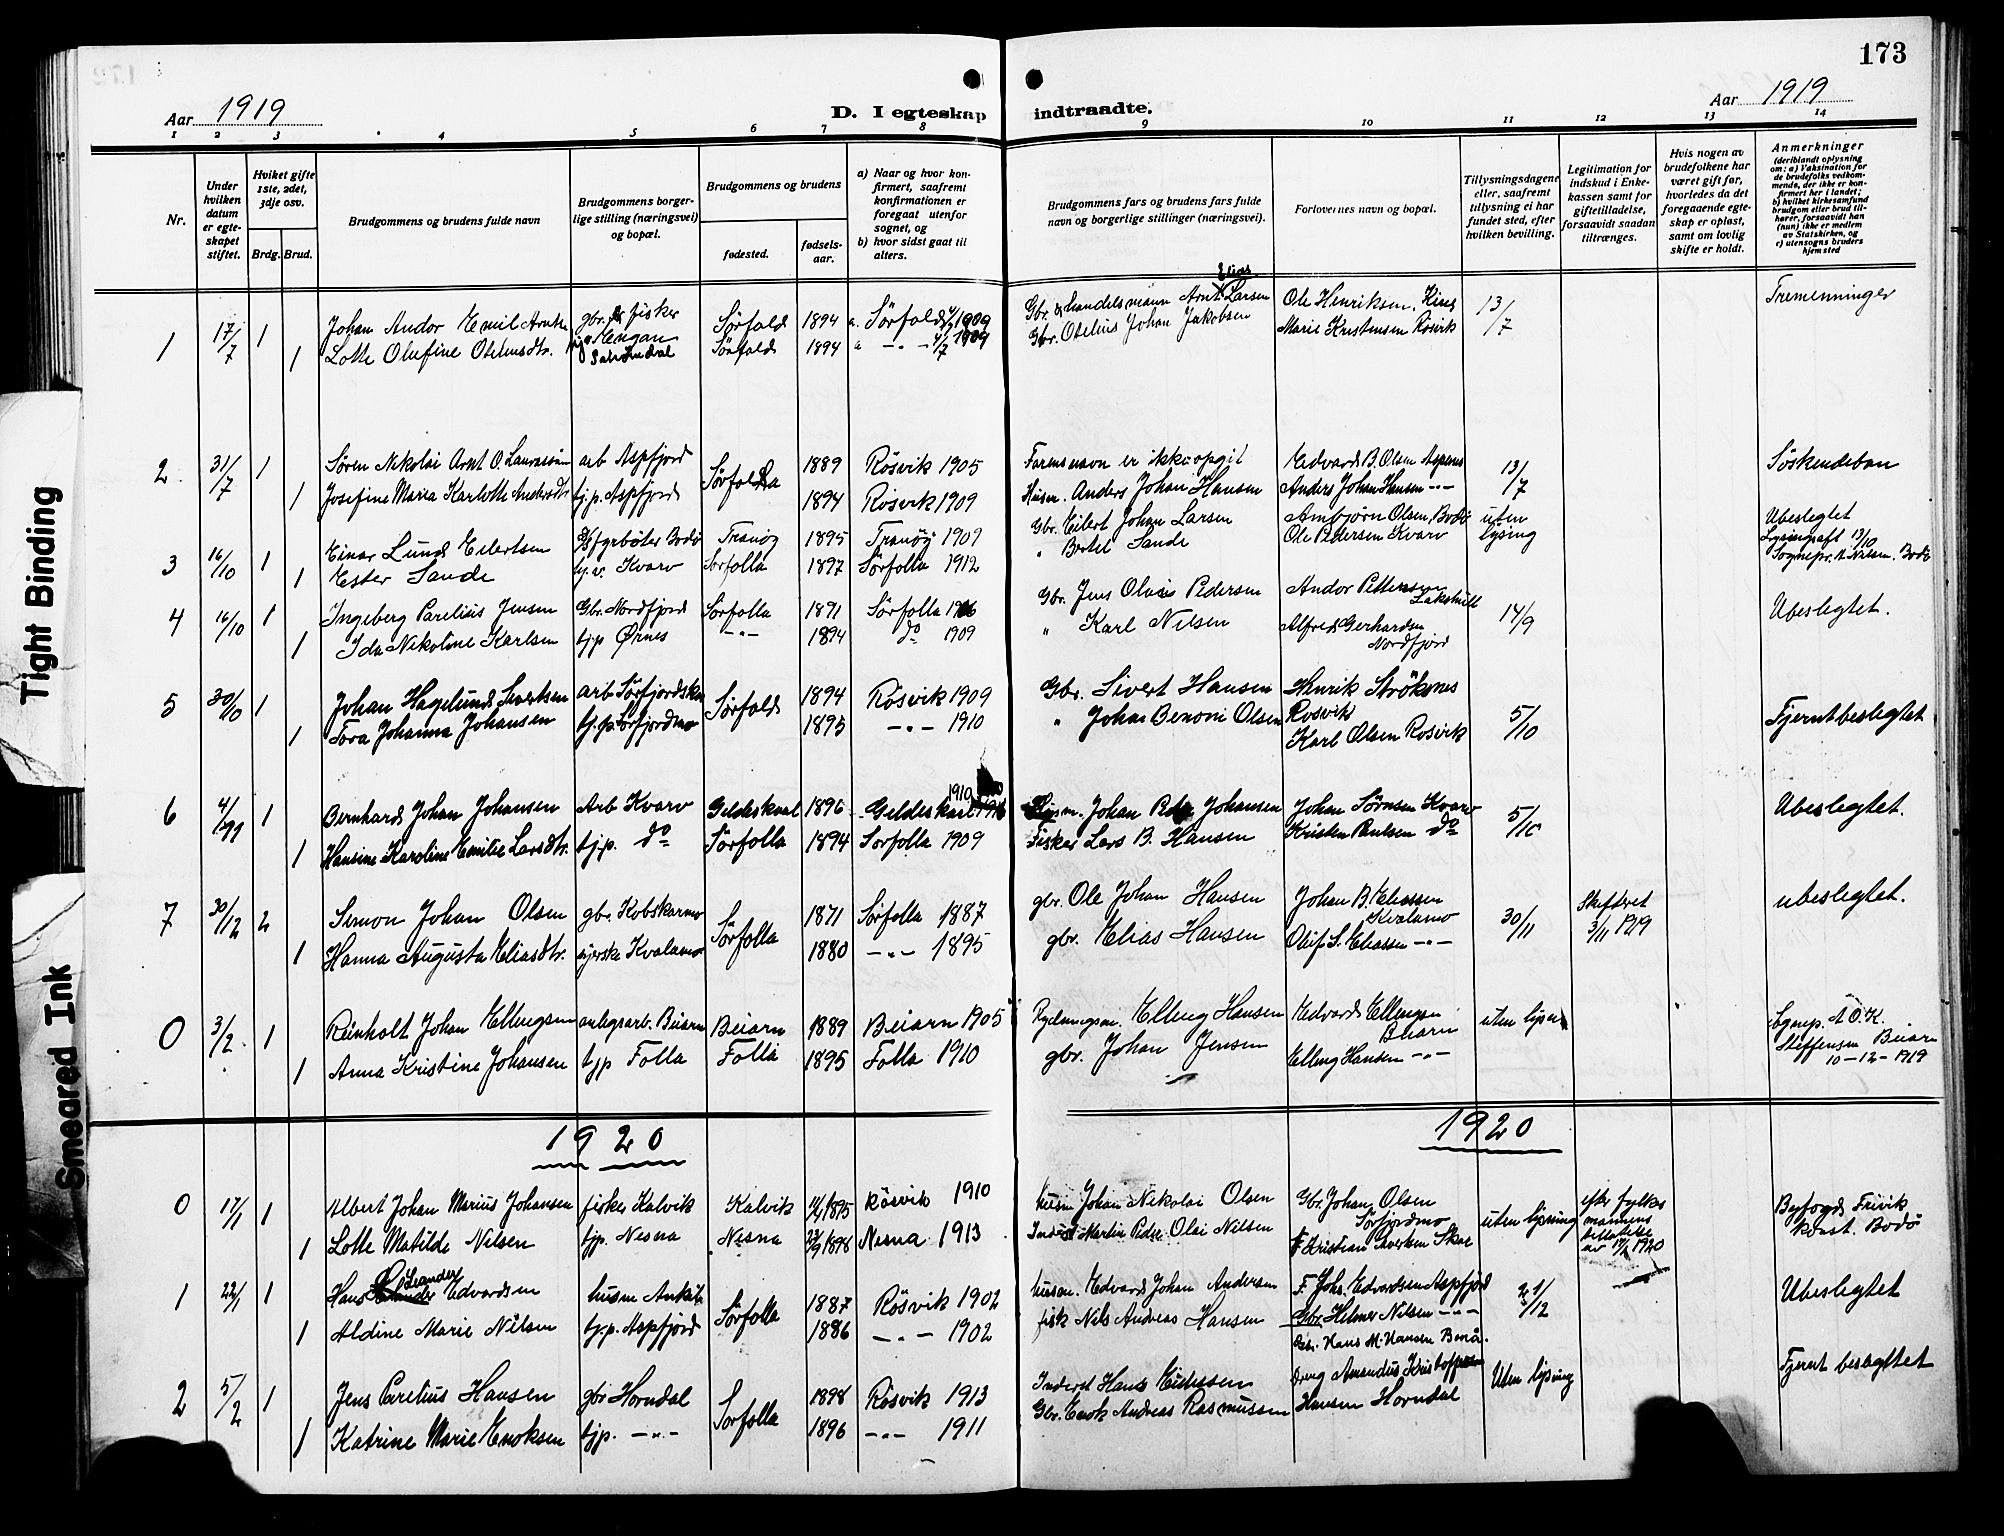 173
Aar 1919
D. I egteskap indtraadte.
Aar 1919
1 2 3 4 5 6 7 8 9 10 11 12 13 14
Nr.
Under hvilken datum er egteskapet stiftet.
Hviket gifte 1ste, 2det, 3dje osv.
Brdg. Brud.
Brudgommens og brudens fulde navn
Brudgommens borgerlige stilling (næringsvei) og bopæl.
Brudgommens og brudens
fødested.
fødselsaar.
a) Naar og hvor konfirmert, saafremt konfirmationen er foregaat utenfor sognet, og
b) hvor sidst gaat til alters.
Brudgommens fars og brudens fars fulde navn og borgerlige stillinger (næringsvei).
Forlovernes navn og bopæl.
Tillysningsdagene eller, saafremt tillysning ei har fundet sted, efter hvilken bevilling.
Legitimation for indskud i Enkekassen samt for giftetilladelse, forsaavidt saadan tiltrænges.
Hvis nogen av brudefolkene har været gift før, hvorledes da det foregaaende egteskap er opløst, samt om lovlig skifte er holdt.
Anmerkninger
(deriblandt oplysning om: a) Vaksination for de brudefolks vedkommende, der ikke er konfirmert her i landet; b) hvilket kirkesamfund brudgom eller brud tilhører, forsaavidt han (hun) ikke er medlem av Statskirken, og c) utensogns bruders hjemsted
1 17/7 1 Johan Andor Emil gbr. fisker Engan Sørfold 1894 a. Sørfold 1909 Gbr. & Handelsmann Arnt Elias Larsen Ole Henriksen 13/7 Tremenninger
1 Lotte Olufine Sørfold 1894 a -"- 4/7 1909 Gbr. Otelius Johan Jakobsen Marie Kristensen Røsvik
2 31/7 1 Søren Nikolai Arnt O. arb Aspfjord Sørfolla 1889 Røsvik 1905 Farens navn er ikke opgit Edvard B. Olsen 13/7 Söskendebarn
1 Josefine Maria Karlotte Andersdtr. tj.p. Aspfjord 1894 Røsvik 1909 Husm. Anders Johan Hansen Anders Johan Hansen -"-
3 16/10 1 Einar Lund Eilertsen fyrbøter Bodø Tranøy 1895 Tranøy 1909 Gbr. Eilert Johan Larsen Arnbjørn Olsen, Bodø uten lysing Ubeslegtet
1 Ester Sande Kvarv Sørfolla 1897 Sørfolla 1912 " Bertel Sande Ole Pedersen Kvarv Lysingsatt 13/10 Bodø
4 16/10 1 Ingeberg Parelius Jensen Gbr. Nordfjord Sørfolla 1891 Sørfolla Gbr. Jens Olai Pedersen Andor Pettersen 14/9 Ubeslegtet.
1 Ida Nikoline Karlsen tj.p. Ørnes -"- 1894 do 1909 " Karl Nilsen Alfred Gerhardsen Nordfjord
5 30/10 1 Johan Hagelund Sivertsen arb Sørfold 1894 Røsvik 1909 Gbr. Sivert Hansen Henrik Strøksnes Røsvik 5/10 Fjernt beslegtet
1 Tora Johanna Johansen tj.p. Sörfjordmo 1895 -"- 1910 " Johan Benoni Olsen Karl Olsen Rosvik
6 4/11 1 Bernhard Johan Johansen Arb Kvarv Gildeskaal 1896 Gildeskaal 1910 Johan Johansen Johan Sørnsen Kvarv 5/10 Ubeslegtet.
1 Hansine Karoline Emilie Larsdtr. tj.p. do Sørfolla 1894 Sørfolla 1909 Fisker Lars B. Hansen Kristen Paulsen do
7 30/12 2 Simon Johan Olsen gbr. Kobskarmo Sørfolla 1871 Sørfolla 1887 gbr. Ole Johan Hansen Johan B. Eliassen Kvalamo 30/11 Skifteret 3/11 1919 ubeslegtet.
1 Hanna Augusta Eliasdtr. syerske Kvalamo 1880 -"- 1895 gbr. Elias Hansen Oluf S. Eliassen -"-
0 3/2 1 Reinholt Johan Ellingsen anlegsarb. Beiarn Beiarn 1889 Beiarn 1905 Rydningsm. Elling Hansen Edvard Ellingsen Beiarn uten Sognep. A.O.K. Steffensen Beiarn 10-12-1919
1 Anna Kristine Johansen tjp Folla Folla 1895 Folla 1910 gbr. Johan Jensen Elling Hansen -"-
1920
1920
0 17/1 1 Albert Johan Marius Johansen fisker Kalvik Kalvik 1895 Røsvik 1910 Husm Johan Nikolai Olsen Gbr. Johan Olsen Sørfjordmo uten lysing efter fylkesmannens tillatelse av 1920 Byfogd Frivik konst. Bodø
1 Lotte Matilde Nilsen tjp. Nesna Nesna 1898 Nesna 1913 Inderst Martin Peder Olai Nilsen Kristian Sivertsen
1 22/1 1 Hans Leander Edvardsen husm Sørfolla 1887 Røsvik 1902 husm. Edvard Johan Andersen F. Joh. Edvardsen Aspfjord 21/12 Ubeslegtet
1 Aldine Marie Nilsen tj.p. Aspfjord 1886 -"- 1902 fisk Nils Andreas Hansen Gbr. Helmer Nilsen -"-
2 5/2 1 Jens Parelius Hansen gbr Horndal Sørfolla 1898 Røsvik 1913 Inderst Hans Gbr. Hans M. Hansen Bonå. Uten lysing Fjernt beslegtet
1 Katrine Marie Enoksen tjp. -"- 1896 -"- 1911 Gbr. Enok Andreas Rasmussen Amandus Kristoffersen Hansen Horndal
Tight Binding
Smeared Ink